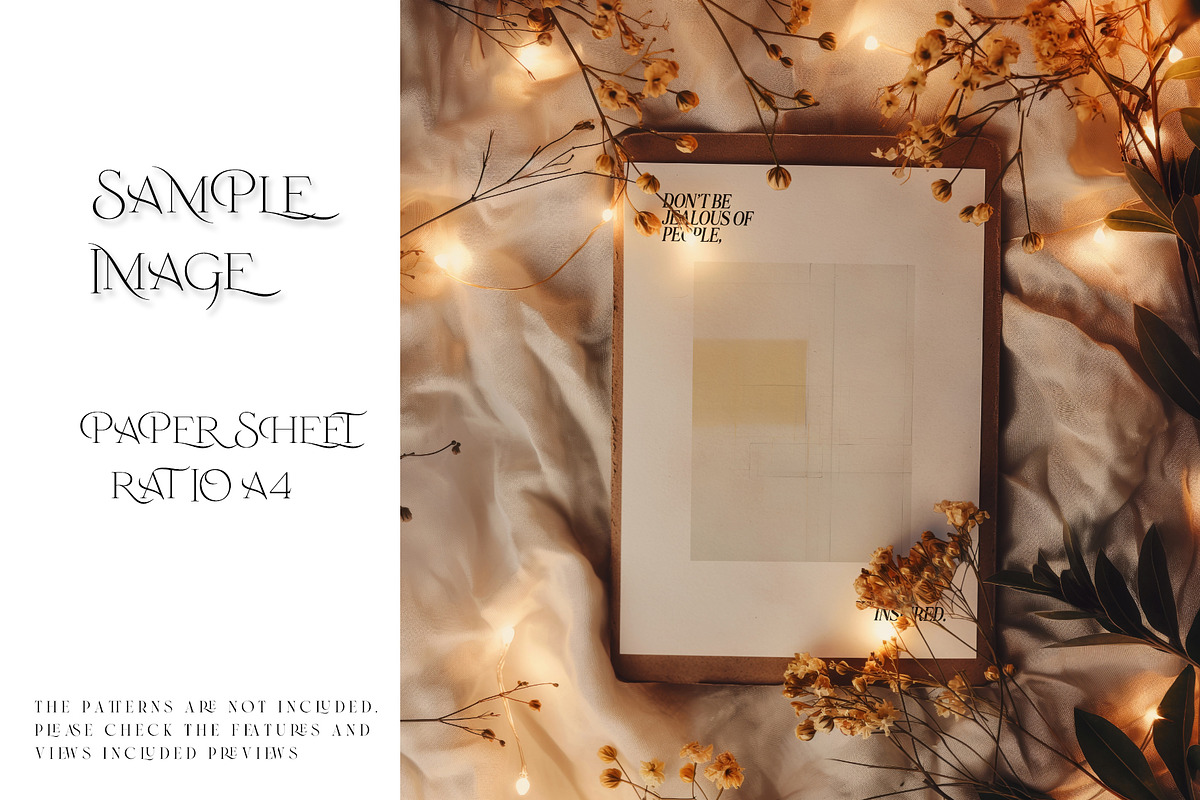 SAMPLE
IMAGE
PAPER SHEET
RATIO A4
THE PATTERNS ARE NOT INCLUDED,
PLEASE CHECK THE FEATURES AND
VIEWS INCLUDED PREVIEWS
DON'T BE
JEALOUS OF
PEOPLE,